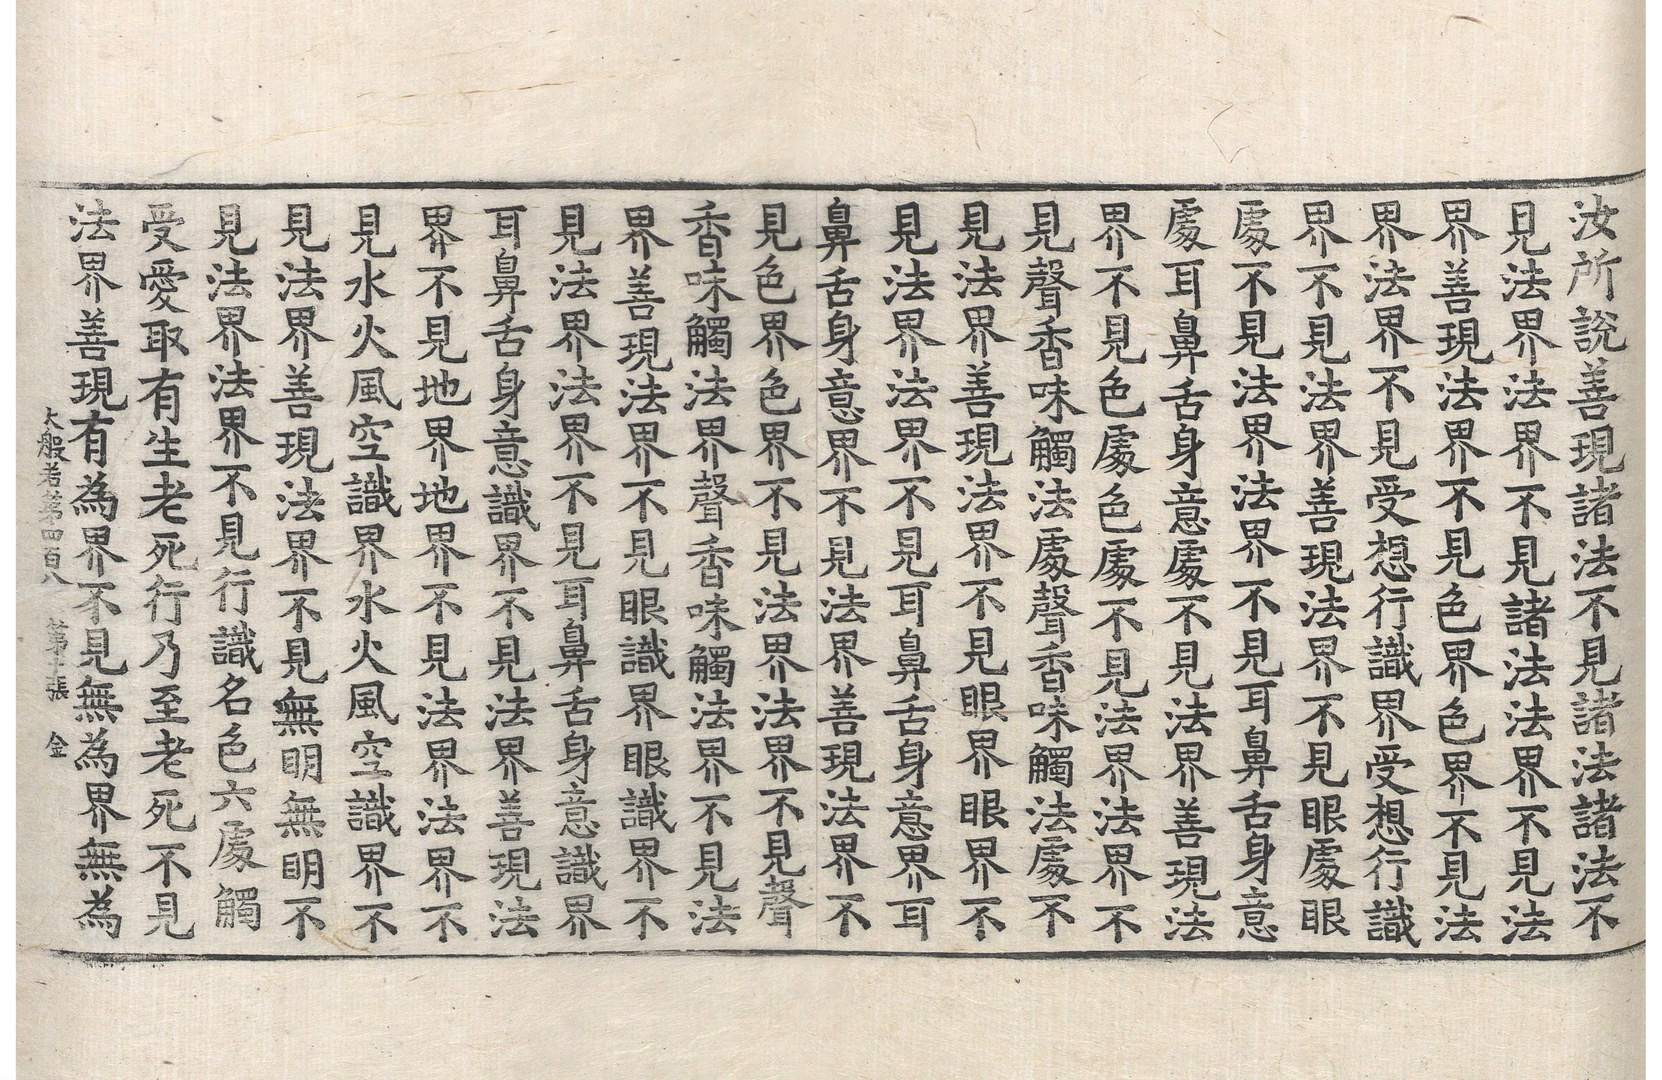 汝所說善現諸法不見諸法諸法不
見法界法界不見諸法法界不見法
界善現法界不見色界色界不見法
界法界不見受想行識界受想行識
界不見法界善現法界不見眼處眼
處不見法界法界不見耳鼻舌身意
處耳鼻舌身意處不見法界善現法
界不見色處色處不見法界法界不
見聲香味觸法處聲香味觸法處不
見法界善現法界不見眼界眼界不
見法界法界不見耳鼻舌身意界耳
鼻舌身意界不見法界善現法界不
見色界色界不見法界法界不見聲
香味觸法界聲香味觸法界不見法
界善現法界不見眼識界眼識界不
見法界法界不見耳鼻舌身意識界
耳鼻舌身意識界不見法界善現法
界不見地界地界不見法界法界不
見水火風空識界水火風空識界不
見法界善現法界不見無明無明不
見法界法界不見行識名色六處觸
受愛取有生老死行乃至老死不見
法界善現有為界不見無為界無為
大般若第四百八 第十張 金